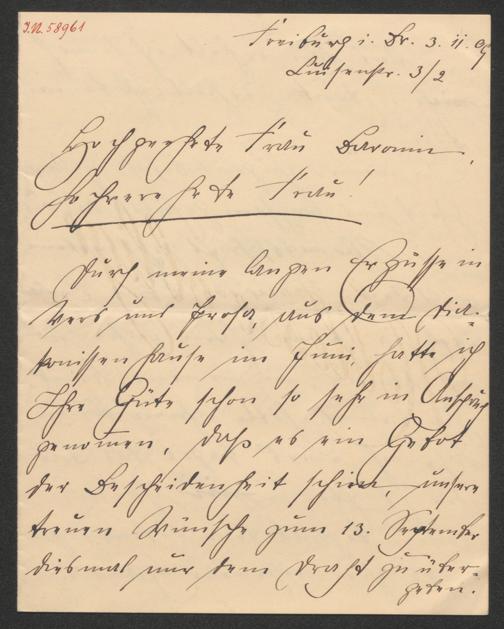 I.N. 58961
Freiburg i. Br. 3. 11. 09
Luisenstr. 3/2
Hochgeehrte Frau Baronin,
Hochverehrte Frau!
Durch meine langen Ergüsse in
Vers und Prosa, aus dem Dia-
konissenhause im Juni, hatte ich
Ihre Güte schon so sehr in Anspruch
genomen, daß es ein Gebot
der Bescheidenheit schien, unsere
treuen Wünsche zum 13. September
diesmal nur dem Draht zu über-
geben.